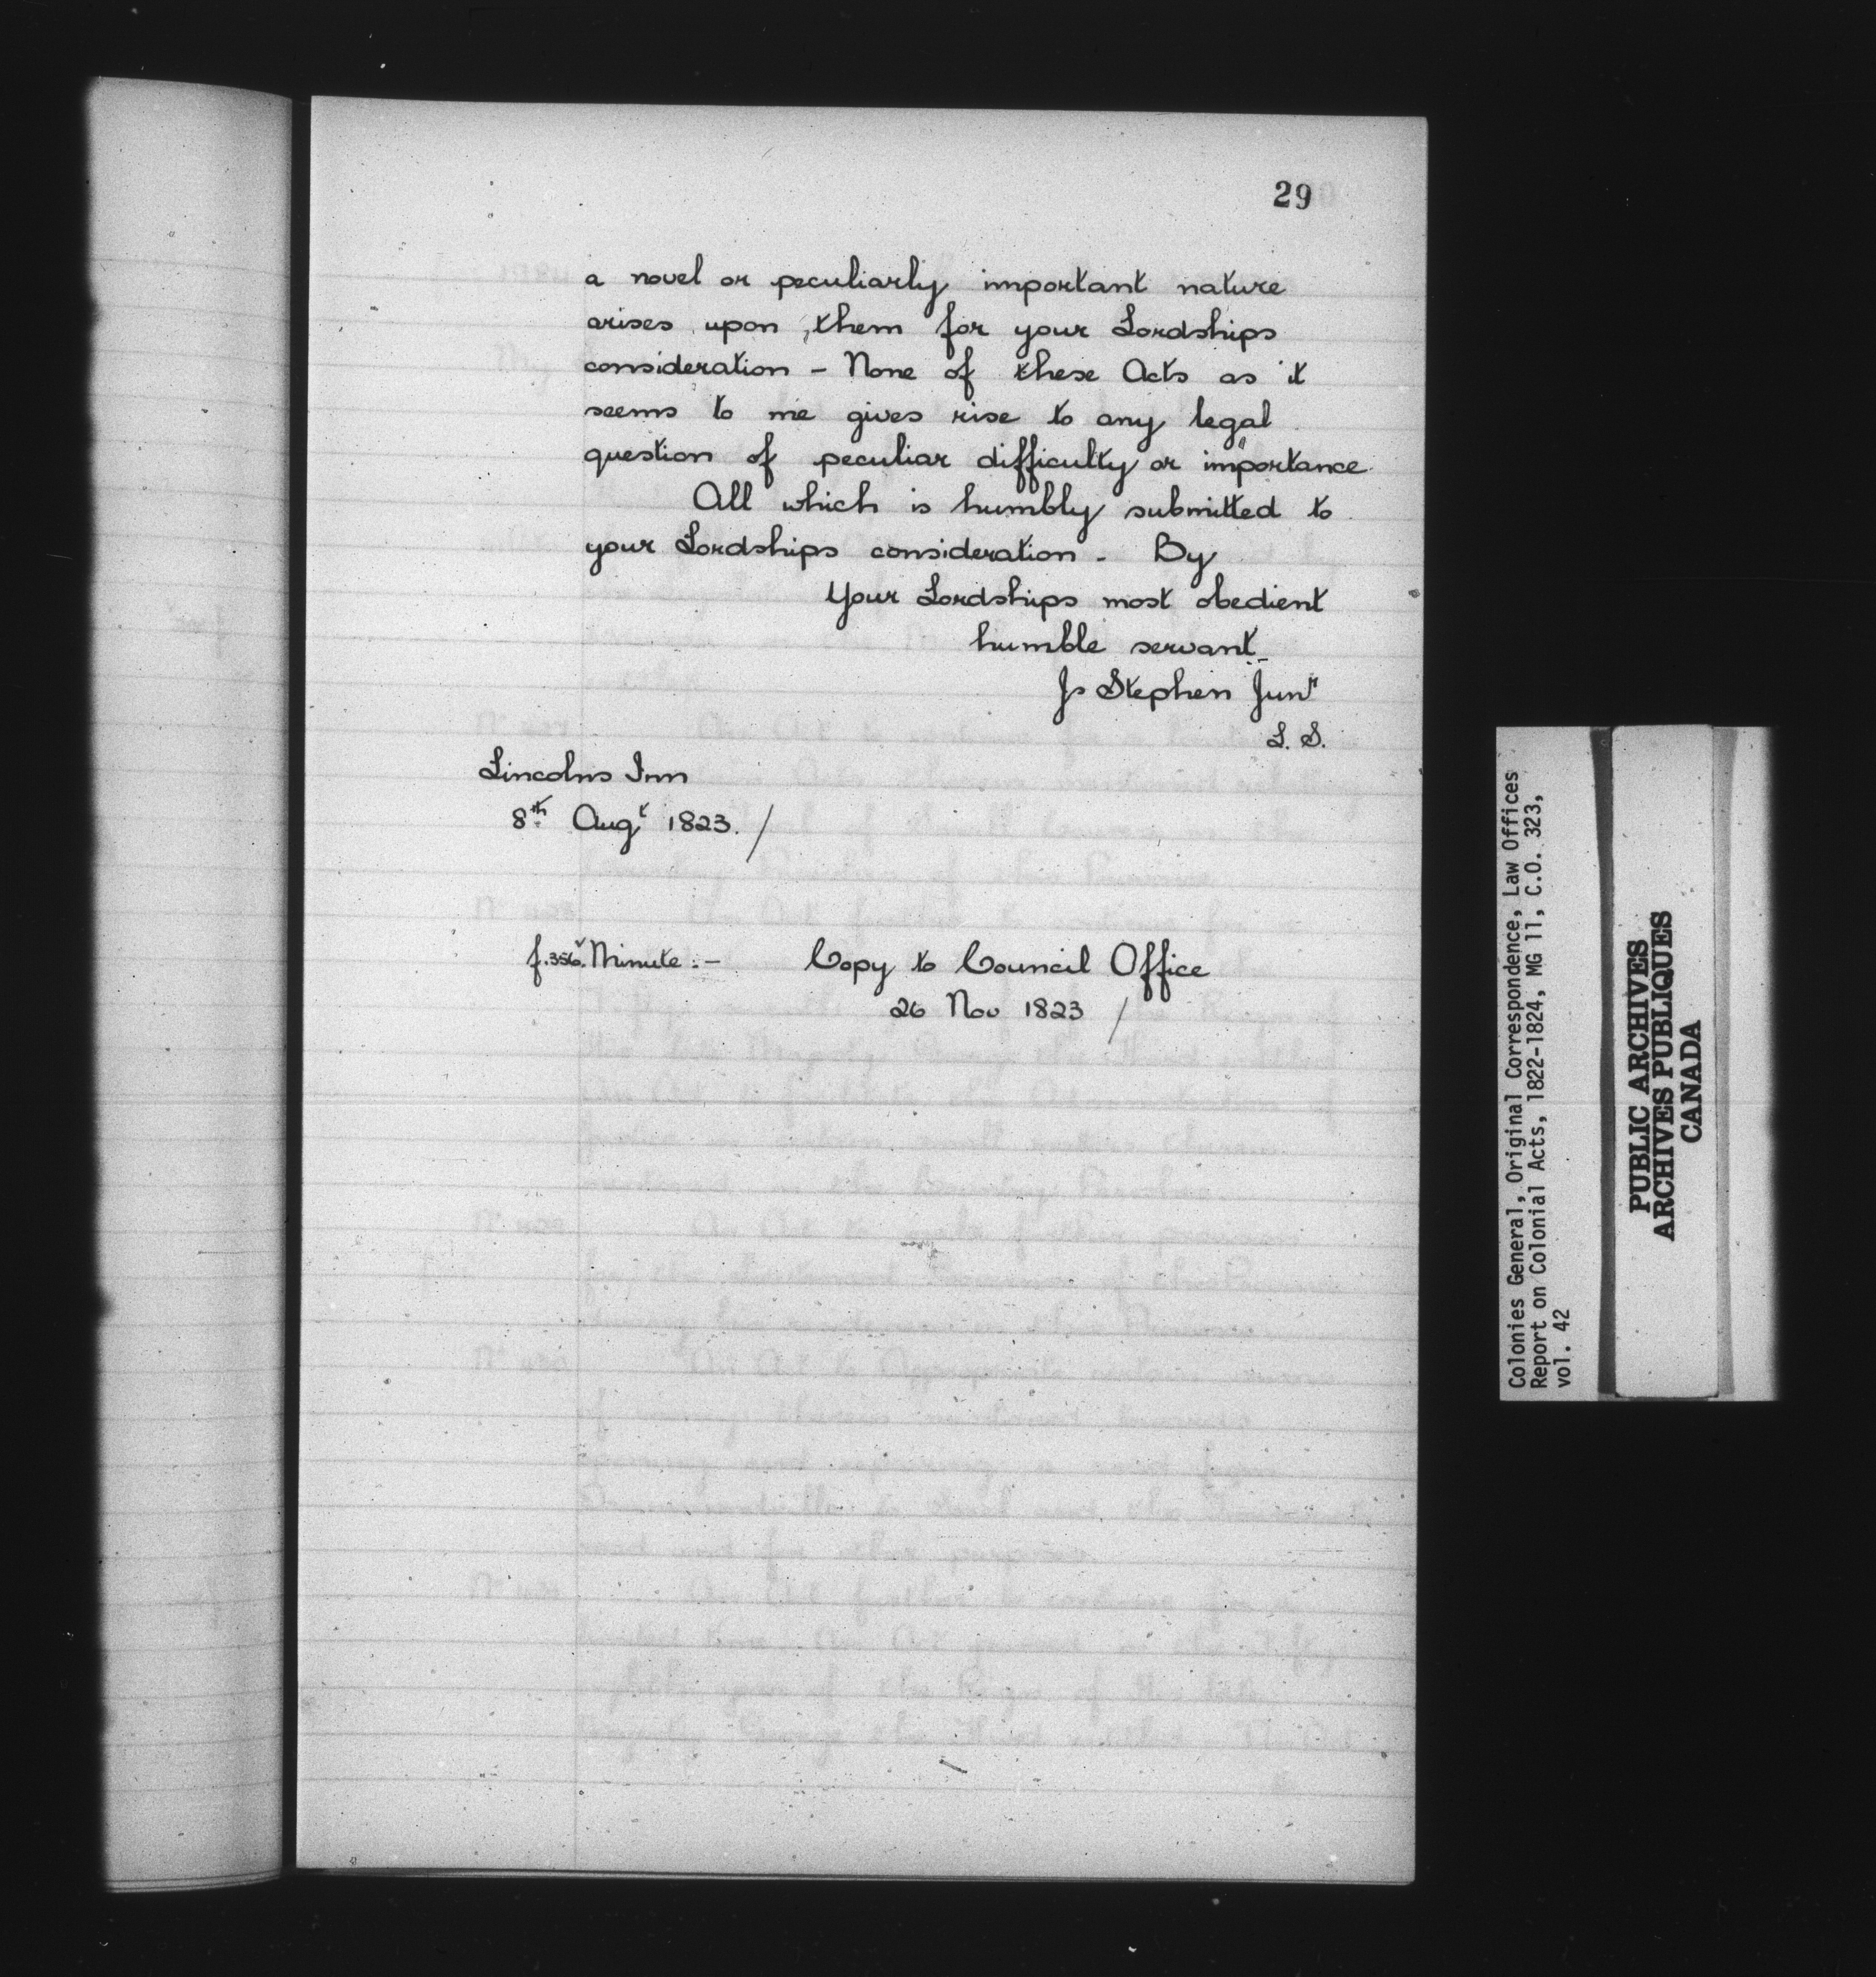 29
a novel or peculiarly important nature
arises upon them for your Lordships
consideration - None of these Acts as it
seems to me gives rise to any legal
question of peculiar difficulty or importance.
All which is humbly submitted to
your Lordships consideration - By
Your Lordships most obedient
humble servant
Js Stephen Junr
L. S.
Lincolns Inn
8th Augt 1823. /
f. 356.v Minute :- Copy to Council Office
26 Nov 1823 /
Colonies General, Original Correspondence, Law Offices
Report on Colonial Acts, 1822-1824, MG 11, C.O. 323,
vol. 42
PUBLIC ARCHIVES
ARCHIVES PUBLIQUES
CANADA